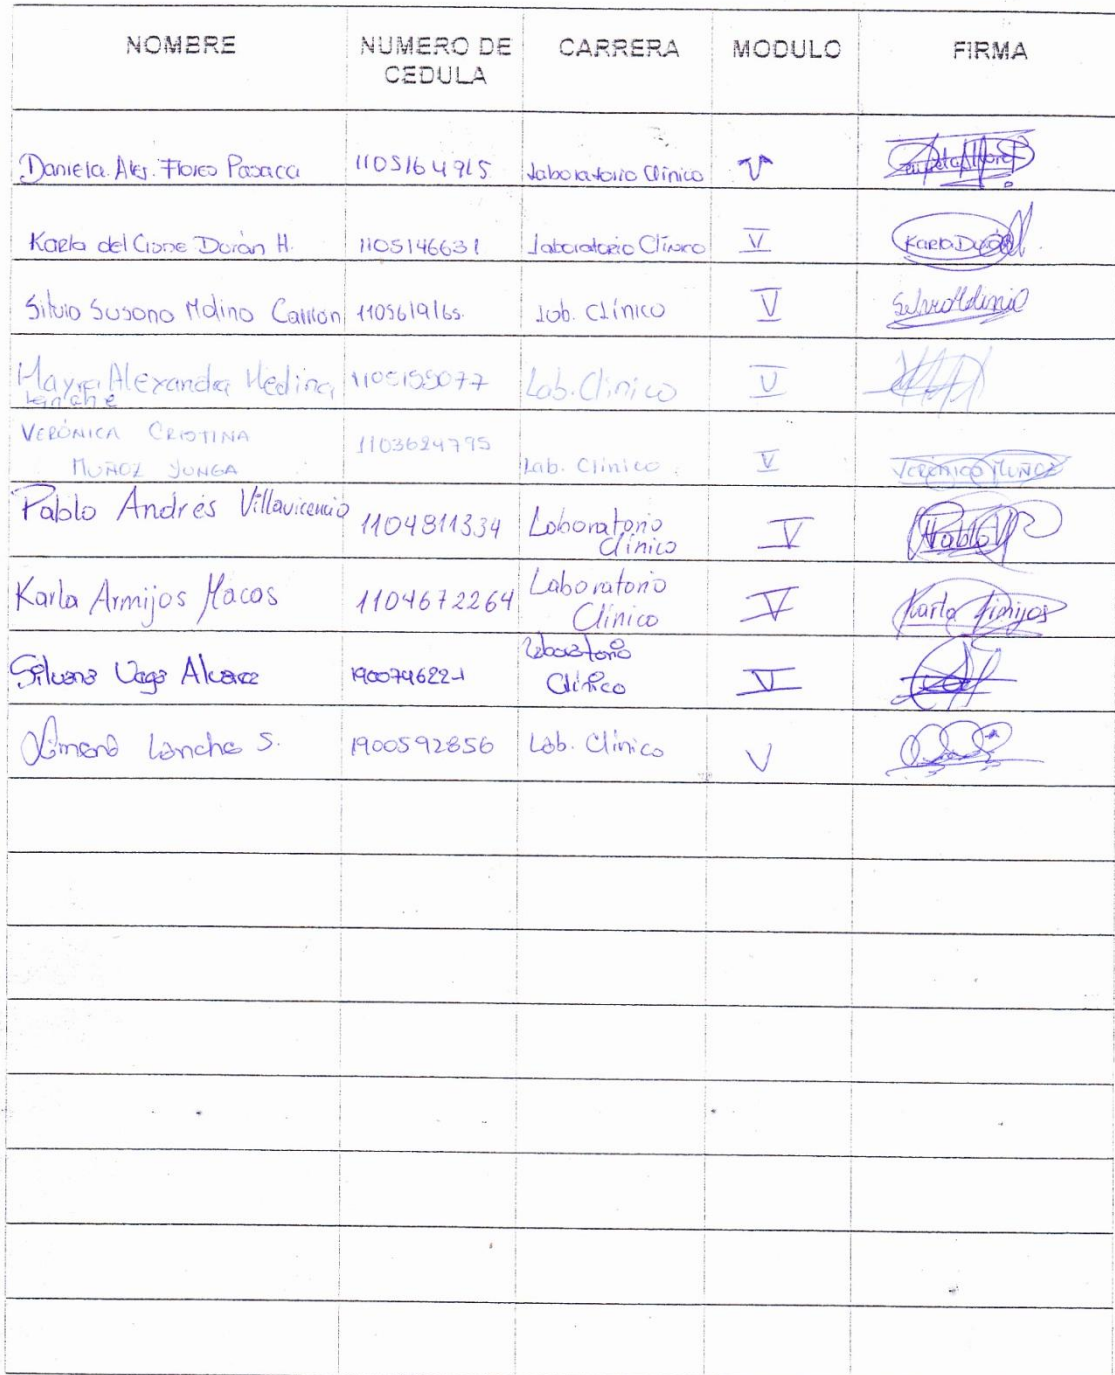 NOMBRE NUMERO DE CEDULA CARRERA MODULO FIRMA
Daniela Alej. Flores Pasaca 1105164915 Laboratorio Clínico V
Karla del Cisne Durán H. 1105146631 Laboratorio Clínico V Karla Durán
Silvia Susana Molina Carrión 1105619165 Lab. Clínico V Silvia Molina
Mayra Alexandra Medina 1105155077 Lab. Clínico V
Lanche
VERÓNICA CRISTINA 1103624795
MUÑOZ JUNGA Lab. Clínico V Verónica Muñoz
Pablo Andrés Villavicencio 1104811334 Laboratorio V Pablo
Clínico
Karla Armijos Macas 1104672264 Laboratorio V Karla Armijos
Clínico
Silvana Vega Alvarez 190074622-1 Laboratorio V
Clínico
Ximena Lanche S. 1900592856 Lab. Clínico V